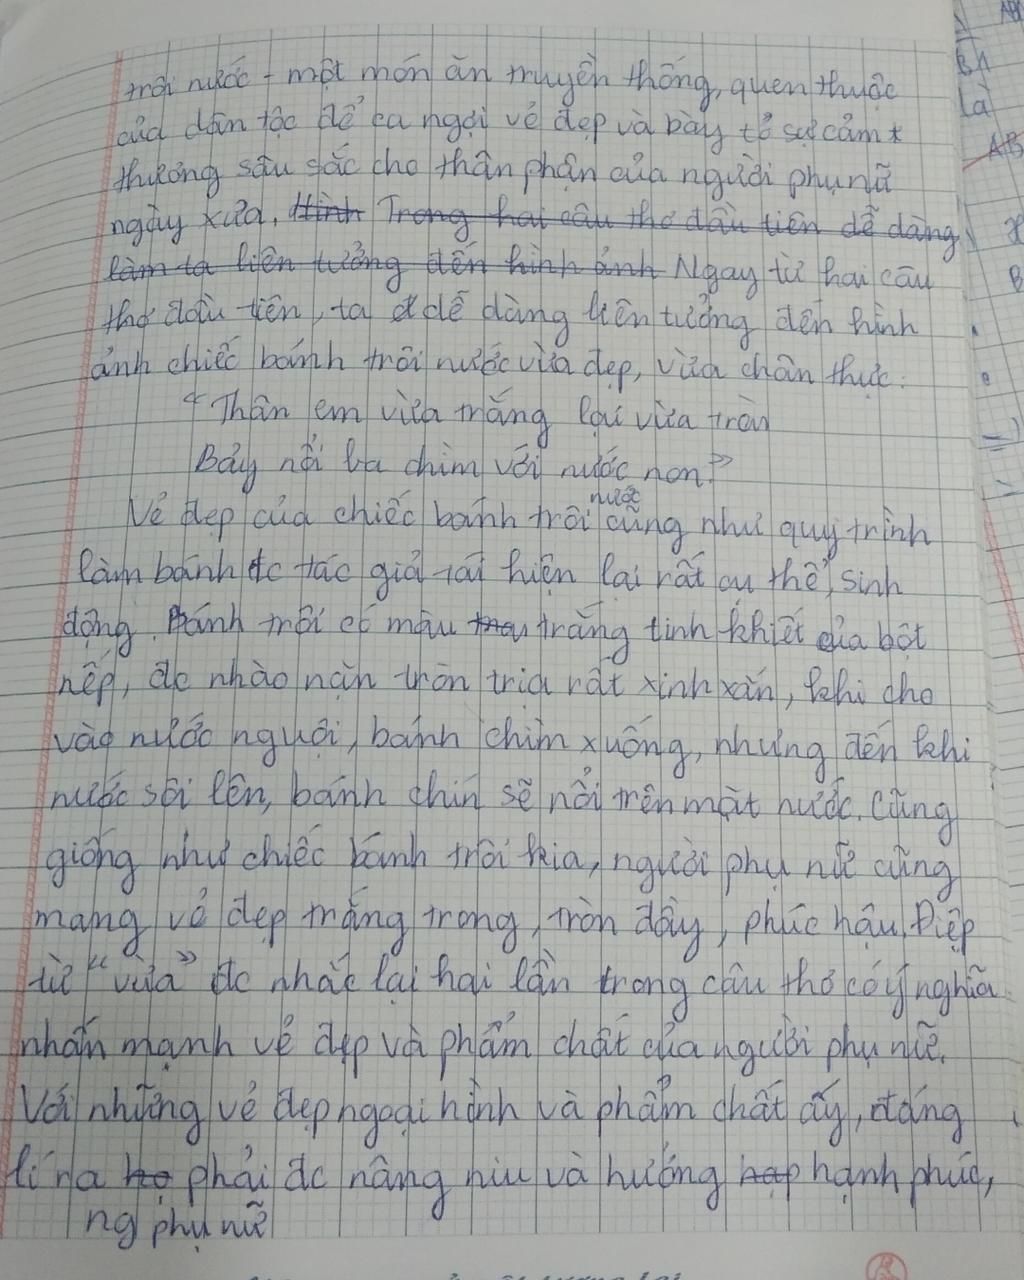 trôi nước - một món ăn truyền thống, quen thuộc
của dân tộc để ca ngợi vẻ đẹp và bày tỏ sự cảm
thương sâu sắc cho thân phận của người phụ nữ
ngày xưa. Hình Trong hai câu thơ đầu tiên dễ dàng
làm ta liên tưởng đến hình ảnh Ngay từ hai câu
thơ đầu tiên, ta đ dễ dàng liên tưởng đến hình
ảnh chiếc bánh trôi nước vừa đẹp, vừa chân thực:
"Thân em vừa trắng lại vừa tròn
Bảy nổi ba chìm với nước non"
Vẻ đẹp của chiếc bánh trôi nước cũng như quy trình
làm bánh đc tác giả tái hiện lại rất cụ thể, sinh
động. Bánh trôi có màu trắng tinh khiết của bột
nếp, đc nhào nặn tròn trịa rất xinh xắn, khi cho
vào nước nguội, bánh chìm xuống, nhưng đến khi
nước sôi lên, bánh chín sẽ nổi trên mặt nước. Cũng
giống như chiếc bánh trôi kia, người phụ nữ cũng
mang vẻ đẹp trắng trong, tròn đầy, phúc hậu. Điệp
từ "vừa" đc nhắc lại hai lần trong câu thơ có ý nghĩa
nhấn mạnh vẻ đẹp và phẩm chất của người phụ nữ.
Với những vẻ đẹp ngoại hình và phẩm chất ấy, đáng
lí ra họ phải đc nâng niu và hưởng hạp hạnh phúc,
ng phụ nữ